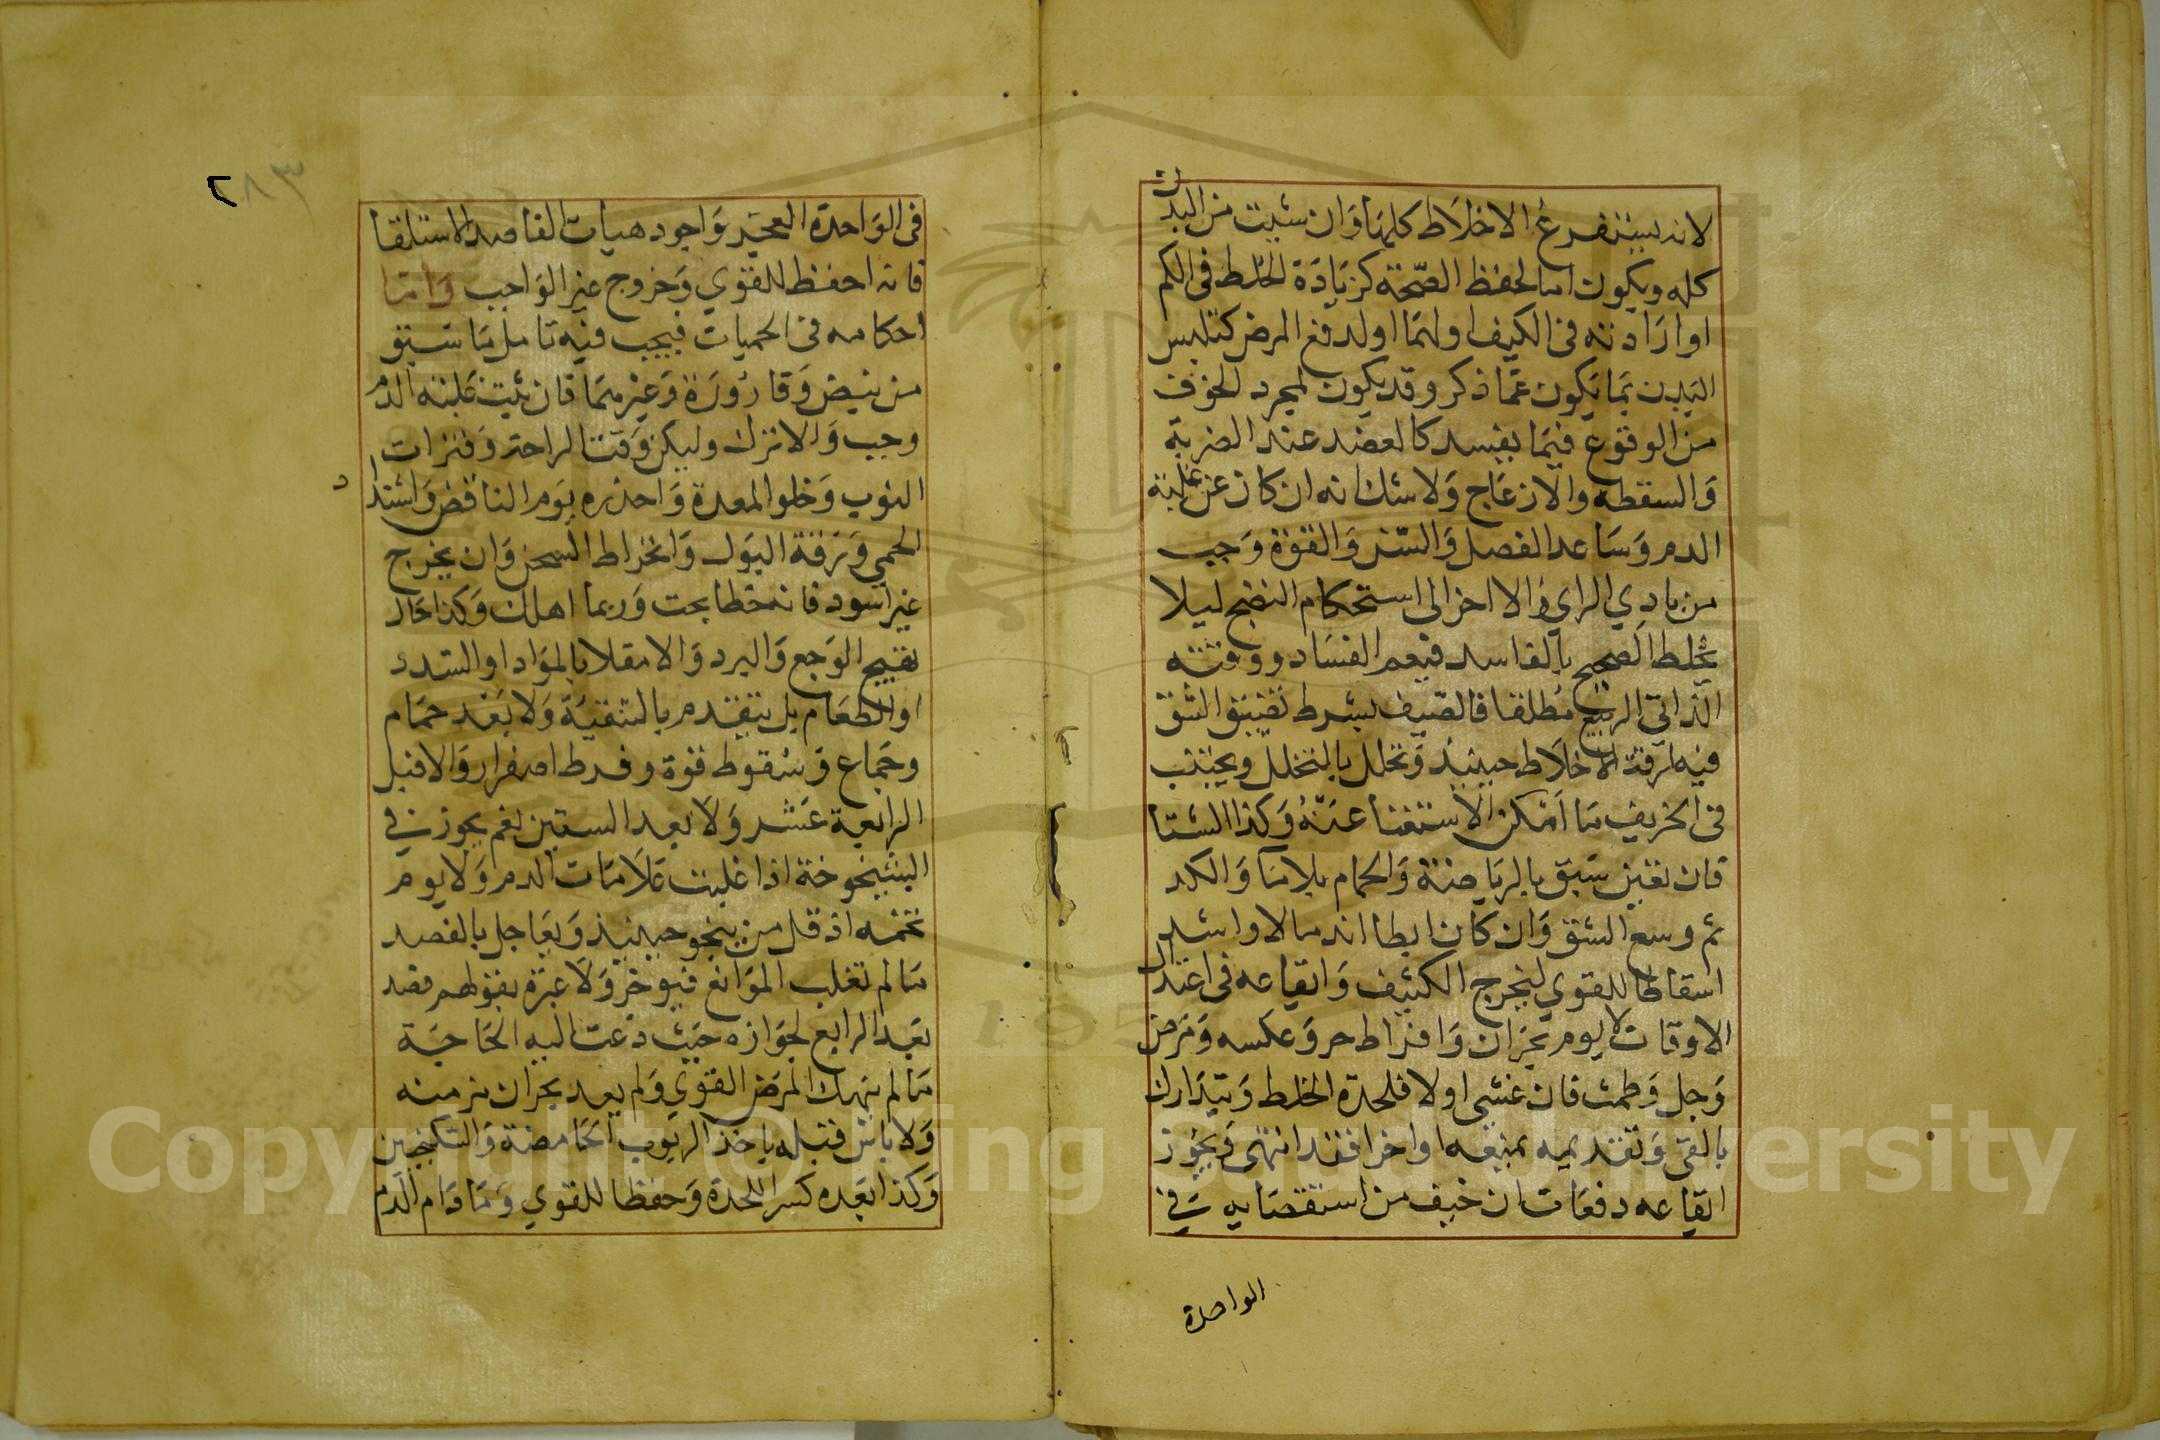 لانه يستفرغ الاخلاط كلها وان شيت من البدن
كله ويكون اما لحفظ الصحة كزيادة الخلط في الكم
او ارادته في الكيف اولهما او لدفع المرض كتلبس
البدن بما يكون عما ذكر وقد يكون لمجرد الخوف
من الوقوع فيما يفسد كالفصد عند الضربة
والسقطه والازعاج ولا شك انه ان كان عن غلبة
الدم وساعد الفصل والسن والقوة وجب
من بادي الراي والا اخر الى استحكام النضج ليلا
يختلط الصحيح بالفاسد فيعم الفساد ووقته
الذاتي الربيع مطلقا فالصيف بشرط تضييق الشق
فيه لرقة الاخلاط حينيذ وتحلل بالتخلل ويجتنب
في الخريف ما امكن الاستغنا عنه وكذا الشتا
فان تعين سبق بالرياضة والحمام بلا ما والكد
ثم وسع الشق وان كان ابطا اندمالا واشد
اسقاطا للقوي ليخرج الكثيف وايقاعه في اعتدال
الاوقات لا يوم بحران وافراط حر وعكسه ومرض
وجل وطمث فان غشي اولا فلحدة الخلط ويتدارك
بالقي وتقديمه يمنعه اواخرا فقد انتهى ويجوز
ايقاعه دفعات ان خيف من استقصايه في
الواحدة
٢٨٣
في الواحدة العجز واجود هيات الفاصد الاستلقا
فانه احفظ للقوي وخروج غير الواجب واما
احكامه في الحميات فيجب فيه تامل ما سبق
من نبض وقارورة وغيرهما فان ثبت غلبة الدم
وجب والا ترك وليكن وقتا لراحة وفترات
النوب وخلو المعدة واحذره يوم النافض واشتداد
الحمي ورقة البول وانخراط السحن وان يخرج
غير اسود فانه خطا بحت وربما اهلك وكذا حال
تهييج الوجع والبرد والامتلا بالمواد او السدد
او الطعام بل يتقدم بالتنقية ولا بعد حمام
وجماع وسقوط قوة وفرط اصفرار والا قبل
الرابعة عشر ولا بعد الستين نعم يجوز في
الشيخوخة اذا غلبت علامات الدم ولا يوم
تخمه اذ قل من ينجو حينيذ ويعاجل بالفصد
ما لم تغلب الموانع فيوخر ولا عبرة بقولهم فصد
بعد الرابع لجوازه حيث دعت اليه الحاجة
ما لم ينهك المرض القوي ولم يعد بحران بزمنه
ولا باس قبله باخذ الربوب الحامضة والسكنجبين
وكذا بعده كسرا للحدة وحفظا للقوي وما دام الدم
Copyright © King Saud University